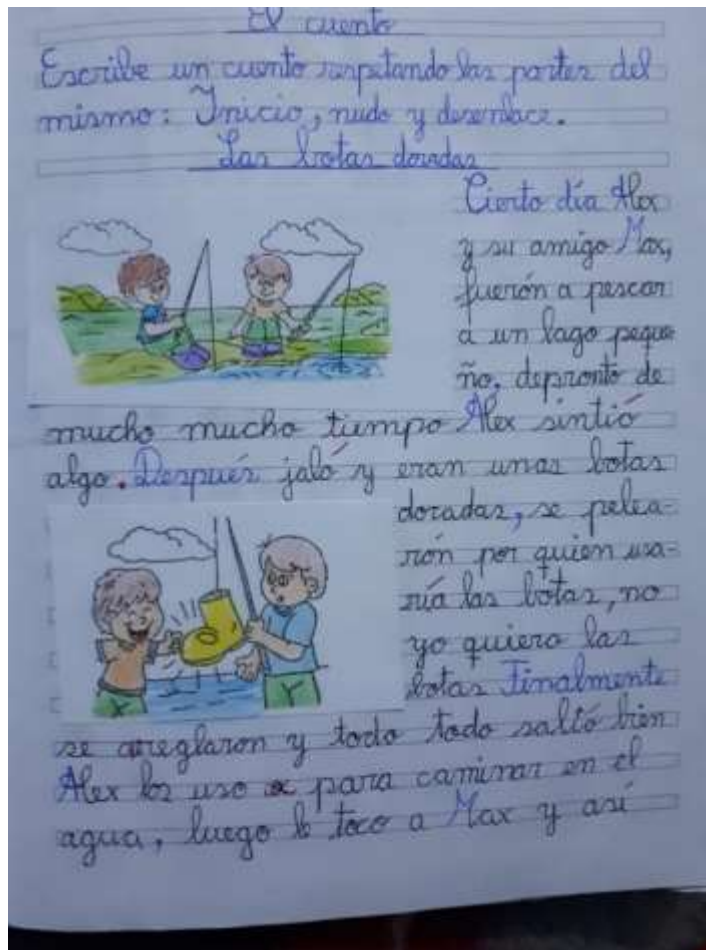 El cuento
Escribe un cuento respetando las partes del
mismo: Inicio, nudo y desenlace.
Las botas doradas
Cierto día Alex
y su amigo Max,
fuerón a pescar
a un lago peque
ño, depronto de
mucho mucho tiempo Alex sintió
algo. Después jaló y eran unas botas
doradas, se pelea-
rón por quien usa-
ría las botas, no
yo quiero las
botas Finalmente
se arreglaron y todo todo saltó bien
Alex los uso para caminar en el
agua, luego le toco a Max y así